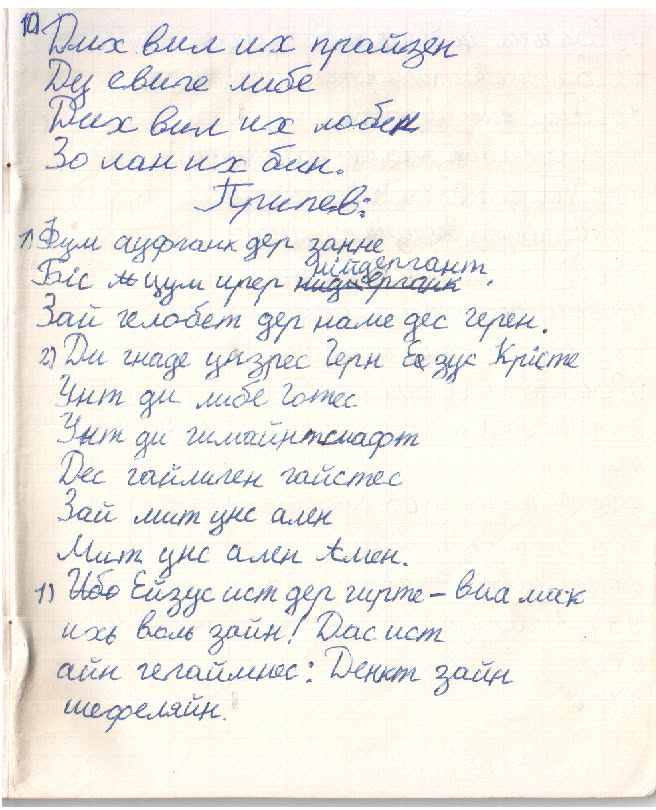 10) Дих вил их прайзен
Ду евиге либе
Дих вил их лобен
Зо лан их бин.
Припев:
1) Фум ауфганк дер занне
нійдергант.
Біс цум ирер нидэерганк
Зай гелобет дер наме дес герен.
2) Ди гнаде унзрес Герн Езус Крісте
Унт ди либе Готес
Унт ди гимайнтшафт
Дес гайлиген гайстес
Зай мит унс ален
Мит унс ален Амен.
1) Ибо Ейзус ист дер гирте – виа мак
ихь воль зайн! Дас ист
айн гегаймнес: Денкт зайн
шефеляйн.